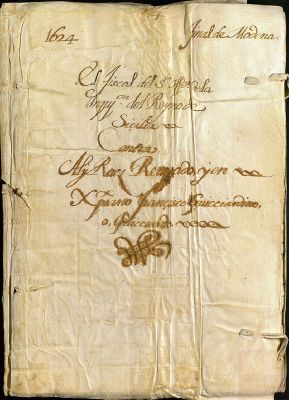 1624 Jnal de Modena.
El fiscal del S.to Off.o de la
Inqq.on del Reyno de
Sicilia
Contra
Aly Raes Renegado, y en
Xpiano Francisco Guicciardino,
o, Guicciardo